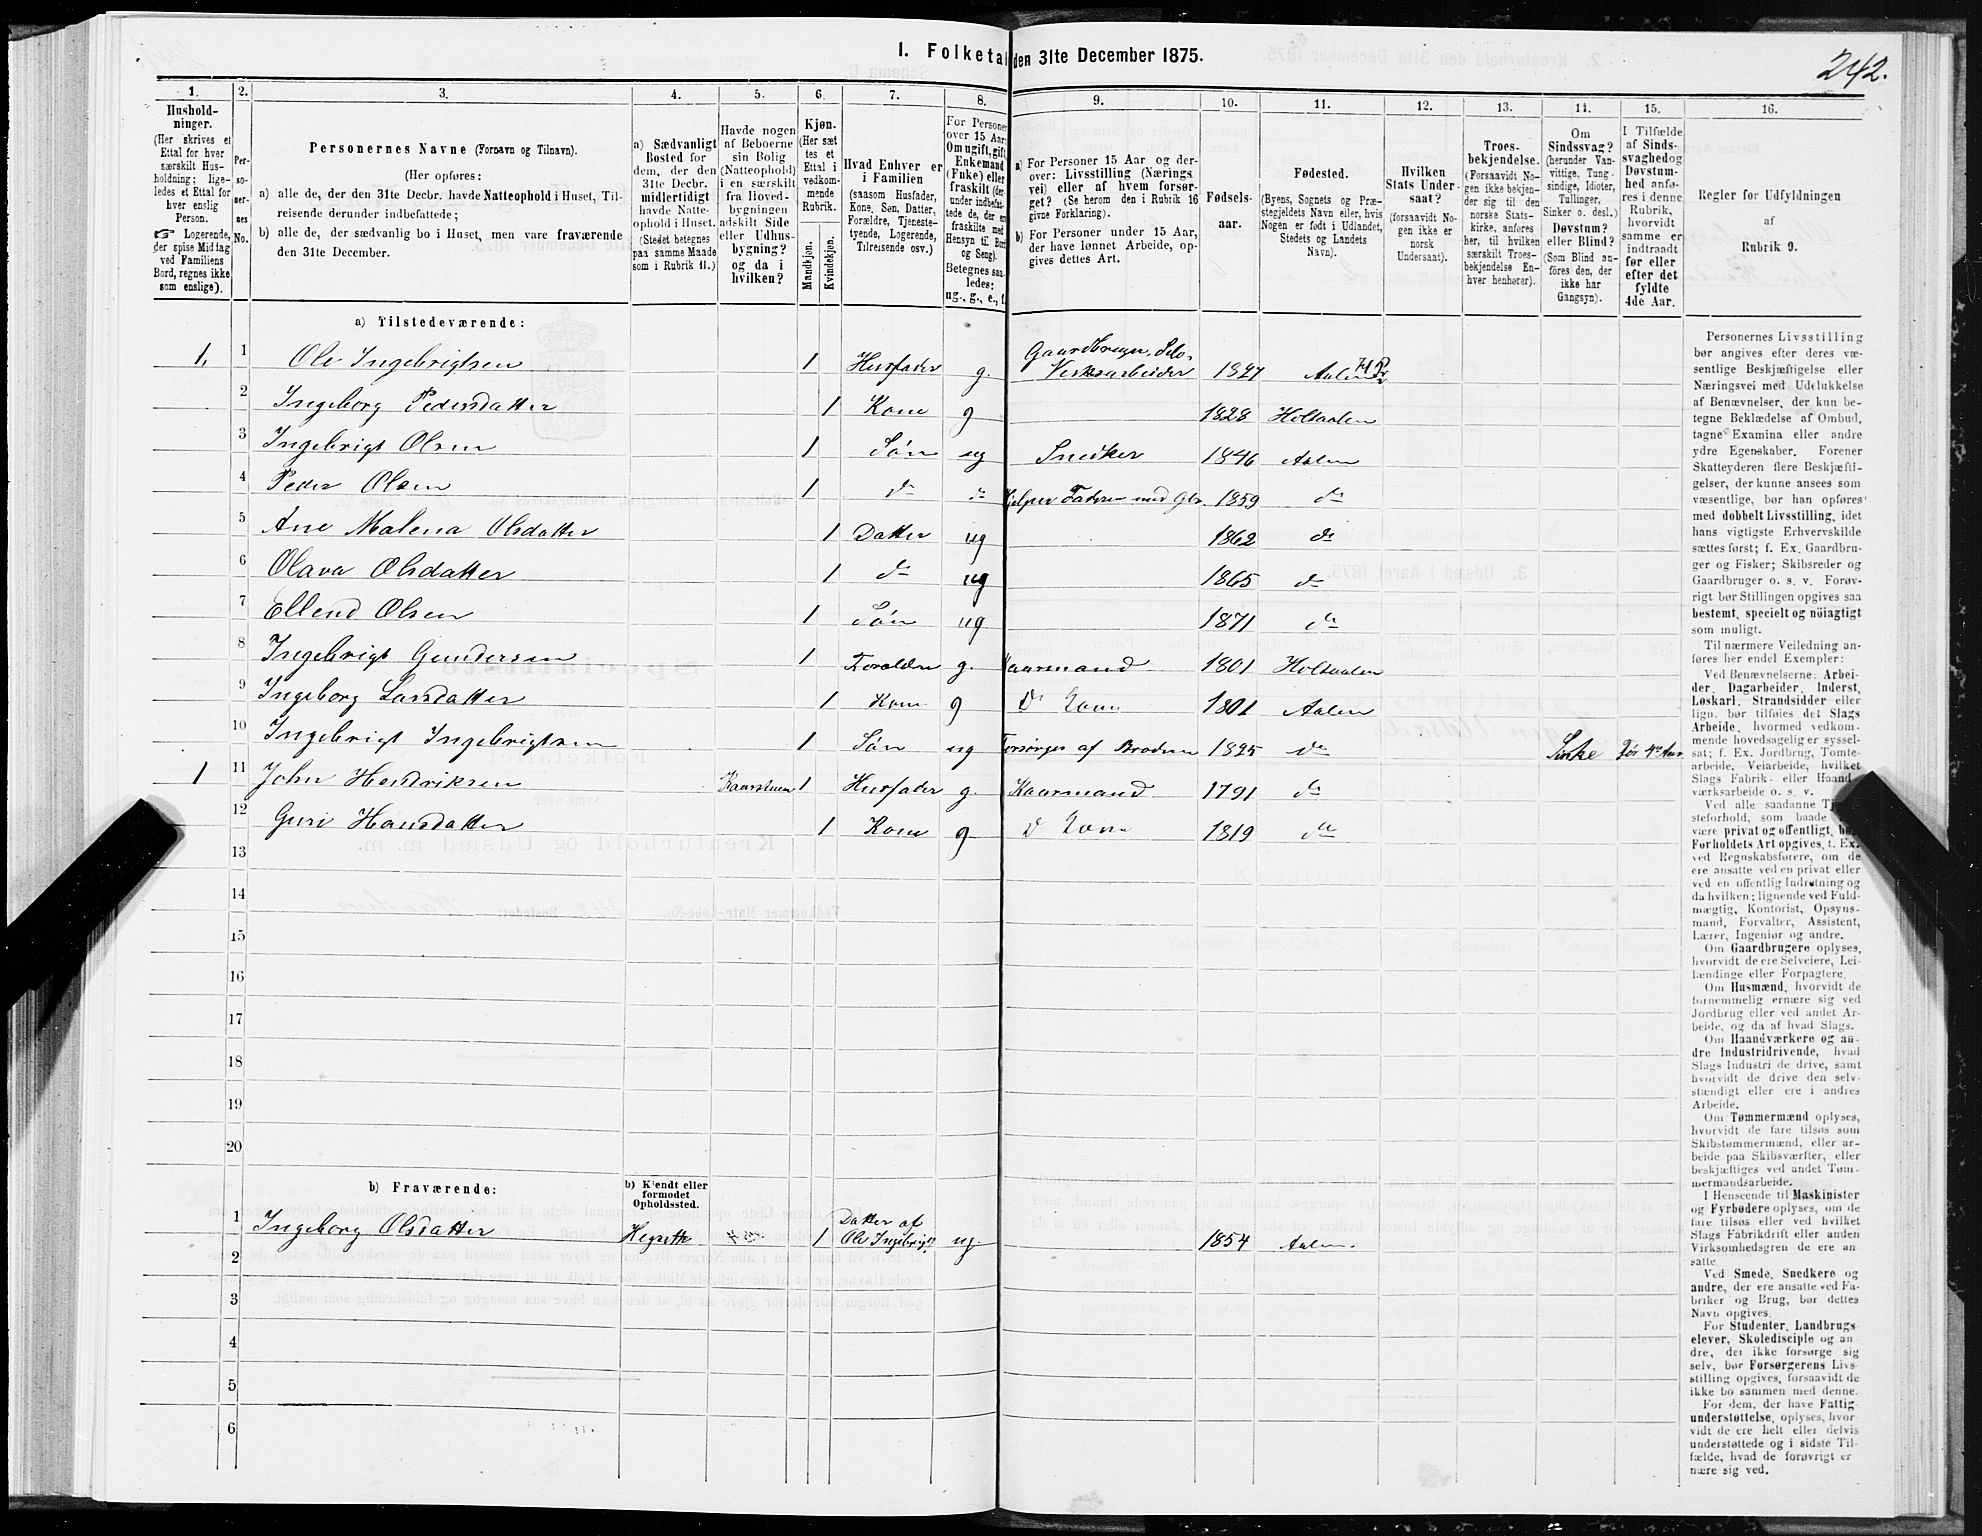 242.
1. Folketal den 31te December 1875.
1. 2. 3. 4. 5. 6. 7. 8. 9. 10. 11. 12. 13. 14. 15. 16.
Hushold-
ninger.
(Her skrives et
Ettal for hver
særskilt Hus-
holdning; lige-
ledes et Ettal for
hver enslig
Person.
☞ Logerende,
der spise Middag
ved Familiens
Bord, regnes ikke
som enslige).
Per-
so-
ner-
nes
No.
Personernes Navne (Fornavn og Tilnavn).
(Her opføres:
a) alle de, der den 31te Decbr. havde Natteophold i Huset, Til-
reisende derunder indbefattede;
b) alle de, der sædvanlig bo i Huset, men vare fraværende
den 31te December.
a) Sædvanligt
Bosted for
dem, der den
31te Decbr.
midlertidigt
havde Natte-
ophold i Huset.
(Stedet betegnes
paa samme Maade
som i Rubrik 11.)
Havde nogen
af Beboerne
sin Bolig
(Natteophold)
i en særskilt
fra Hoved-
bygningen
adskilt Side
eller Udhus-
bygning?
og da i
hvilken?
Kjøn.
(Her sæt-
tes et
Ettal i
vedkom-
mende
Rubrik.
Mandkjøn.
Kvindekjøn.
Hvad Enhver er
i Familien
(saasom Husfader,
Kone, Søn, Datter,
Forældre, Tjeneste-
tyende, Logerende,
Tilreisende osv.)
For Personer
over 15 Aar:
Om ugift, gift,
Enkemand
(Enke) eller
fraskilt (der-
under indbefat-
tede de, der ere
fraskilte med
Hensyn til Bord
og Seng).
Betegnes saa-
ledes:
ug., g., e., f.
a) For Personer 15 Aar og der-
over: Livsstilling (Nærings-
vei) eller af hvem forsør-
get? (Se herom den i Rubrik 16
givne Forklaring).
b) For Personer under 15 Aar,
der have lønnet Arbeide, op-
gives dettes Art.
Fødsels-
aar.
Fødested.
(Byens, Sognets og Præ-
stegjeldets Navn eller, hvis
Nogen er født i Udlandet,
Stedets og Landets
Navn).
Hvilken
Stats Under-
saat?
(forsaavidt No-
gen ikke er
norsk
Undersaat).
Troes-
bekjendelse.
(Forsaavidt No-
gen ikke bekjen-
der sig til den
norske Stats-
kirke, anføres
her, til hvilken
særskilt Troes-
bekjendelse En-
hver henhører).
Om
Sindssvag?
(herunder Van-
vittige, Tung-
sindige, Idioter,
Tullinger,
Sinker o. desl.)
Døvstum?
eller Blind?
(Som Blind an-
føres den, der
ikke har
Gangsyn).
I Tilfælde
af Sinds-
svaghed og
Døvstum-
hed anfø-
res i denne
Rubrik,
hvorvidt
samme er
indtraadt
før eller
efter det
fyldte
4de Aar.
Regler for Udfyldningen
af
Rubrik 9.
a) Tilstedeværende:
1. 1 Ole Ingebrigtsen 1 Husfader g. Gaardbruger, Selv. Verksarbeider 1827 Aalen
2 Ingeborg Pedersdatter 1 Kone g 1828 Holtaalen
3 Ingebrigt Olsen 1 Søn ug Snedker 1846 Aalen
4 Peder Olsen 1 do do Hjelper Faderen med Gbr. 1859 do
5 Ane Malena Olsdatter 1 Datter ug 1862 do
6 Olava Olsdatter 1 do ug 1865 do
7 Ellend Olsen 1 Søn ug 1871 do
8 Ingebrigt Gundersen 1 Forældre g. Kaarmand 1801 Holtaalen
9 Ingeborg Larsdatter 1 Kone g Do Kone 1801 Aalen
10 Ingebrigt Ingebrigtsen 1 Søn ug Forsørges af Broderen 1825 do Sinke Før 4de Aar
1 11 John Hendriksen Kaarstuen 1 Husfader g. Kaarmand 1791 do
12 Guri Hansdatter 1 Kone g Do Kone 1819 do
13
14
15
16
17
18
19
20
b) Fraværende:
b) Kjendt eller
formodet
Opholdssted.
1 Ingeborg Olsdatter 1 Datter af Ole Ingebrigts. ug. 1854 Aalen.
2
3
4
5
6
Personernes Livsstilling
bør angives efter deres væ-
sentlige Beskjæftigelse eller
Næringsvei med Udelukkelse
af Benævnelser, der kun be-
tegne Beklædelse af Ombud,
tagne Examina eller andre
ydre Egenskaber. Forener
Skatteyderen flere Beskjæfti-
gelser, der kunne ansees som
væsentlige, bør han opføres
med dobbelt Livsstilling, idet
hans vigtigste Erhvervskilde
sættes først; f. Ex. Gaardbru-
ger og Fisker; Skibsreder og
Gaardbruger o. s. v. Forøv-
rigt bør Stillingen opgives saa
bestemt, specielt og nøiagtigt
som muligt.
Til nærmere Veiledning an-
føres her endel Exempler:
Ved Benævnelserne: Arbei-
der, Dagarbeider, Inderst,
Løskarl, Strandsidder eller
lign. bør tilføies det Slags
Arbeide, hvormed vedkom-
mende hovedsagelig er syssel-
sat; f. Ex. Jordbrug, Tomte-
arbeide, Veiarbeide, hvilket
Slags Fabrik- eller Haand-
værksarbeide o. s. v.
Ved alle saadanne Tje-
steforhold, som baade
være privat og offentlig, bør
Forholdets Art opgives, f. Ex.
ved Regnskabsførere, om de
ere ansatte ved en privat eller
ved en offentlig Indretning og
da hvilken; lignende ved Fuld-
mægtig, Kontorist, Opsyns-
mand, Forvalter, Assistent,
Lærer, Ingeniør og andre.
Om Gaardbrugere oplyses,
hvorvidt de ere Selveiere, Lei-
lændinge eller Forpagtere.
Om Husmænd, hvorvidt de
fornemmelig ernære sig ved
Jordbrug eller ved andet Ar-
beide, og da af hvad Slags.
Om Haandværkere og an-
dre Industridrivende, hvad
Slags Industri de drive, samt
hvorvidt de drive den selv-
stændigt eller ere i andres
Arbeide.
Om Tømmermænd oplyses,
hvorvidt de fare tilsøs som
Skibstømmermænd, eller ar-
beide paa Skibsværfter, eller
beskjæftiges ved andet Tøm-
mermandsarbeide.
I Henseende til Maskinister
og Fyrbødere oplyses, om de
fare tilsøs eller ved hvilket
Slags Fabrikdrift eller anden
Virksomhedsgren de ere an-
satte.
Ved Smede, Snedkere og
andre, der ere ansatte ved Fa-
briker og Brug, bør dettes
Navn opgives.
For Studenter, Landbrugs-
elever, Skoledisciple og an-
dre, der ikke forsørge sig
selv, bør Forsørgerens Livs-
stilling opgives, forsaavidt de
ikke bo sammen med denne.
For dem, der have Fattig-
understøttelse, oplyses, hvor-
vidt de ere helt eller delvis
understøttede og i sidste Til-
fælde, hvad de forøvrigt er-
nære sig ved.